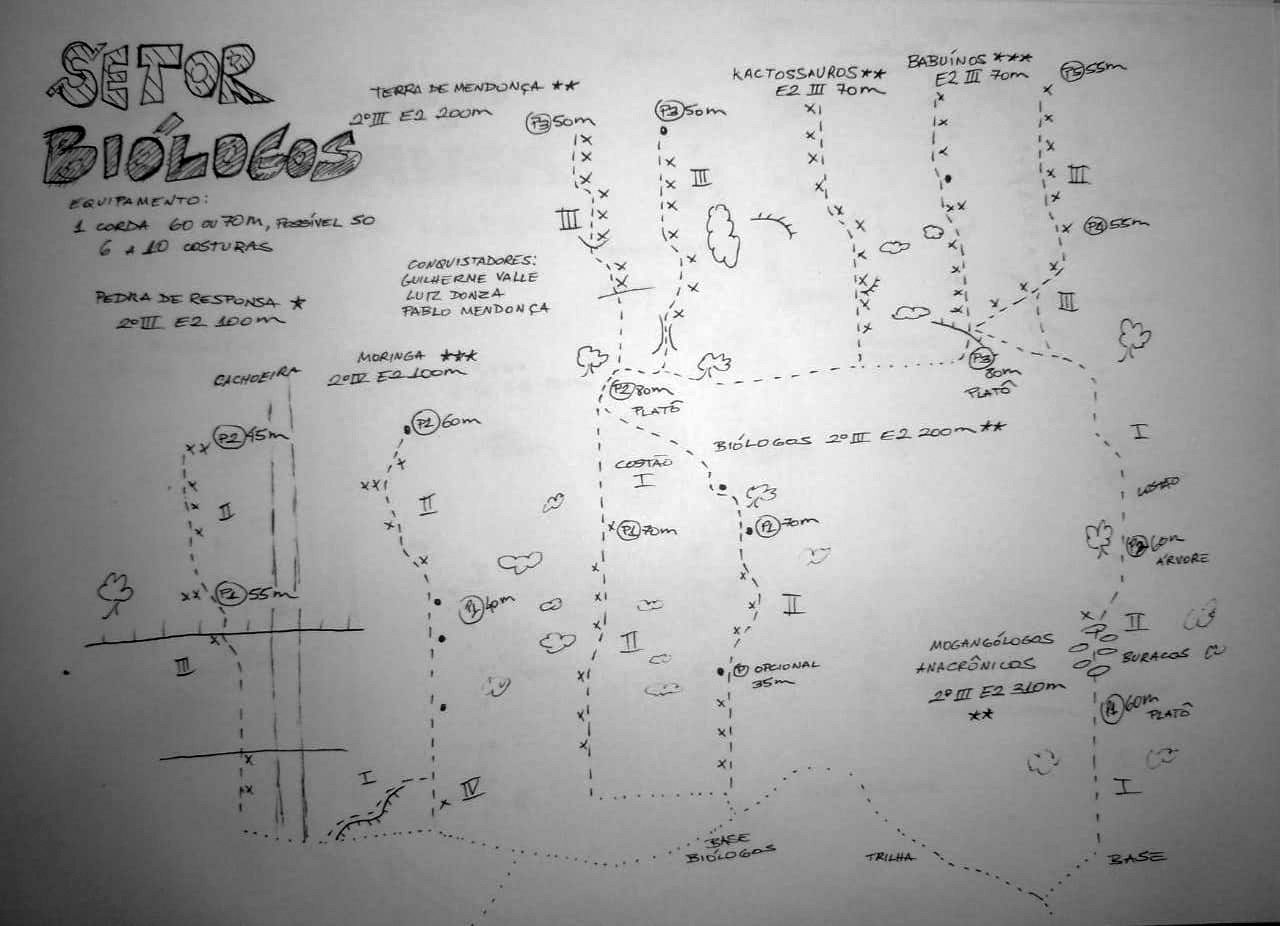 SETOR
BIÓLOGOS
EQUIPAMENTO:
1 CORDA 60 OU 70M, POSSÍVEL 50
6 A 10 COSTURAS
PEDRA DE RESPONSA *
2º III E2 100m
CACHOEIRA
P2 45m
II
P1 55m
III
TERRA DE MENDONÇA **
2º III E2 200m
P3 50m
III
P3 50m
III
CONQUISTADORES:
GUILHERME VALLE
LUIZ DONZA
PABLO MENDONÇA
MORINGA ***
2º IV E2 100m
P1 60m
II
P1 40m
I
IV
KACTOSSAUROS **
E2 III 70m
BABUÍNOS ***
E2 III 70m
P5 55m
III
P4 55m
III
P3
80m
PLATÔ
P2 80m
PLATÔ
BIÓLOGOS 2º III E2 200m **
COSTÃO
I
P1 70m
P1 70m
II
II
OPCIONAL
35m
I
COSTÃO
P2 60m
ÁRVORE
II
MOGANGÓLOGOS
ANACRÔNICOS
2º III E2 310m
**
BURACOS
P1 60m
PLATÔ
I
BASE
BIÓLOGOS
TRILHA
BASE